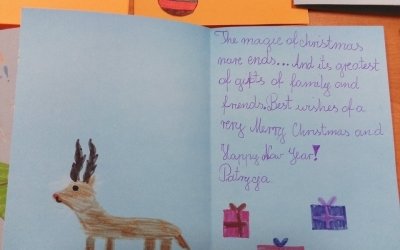 The magic of christmas
nare ends... And its greatest
of gifts of family and
friends. Best wishes of a
very Merry Christmas and
Happy New Year!
Patrycja